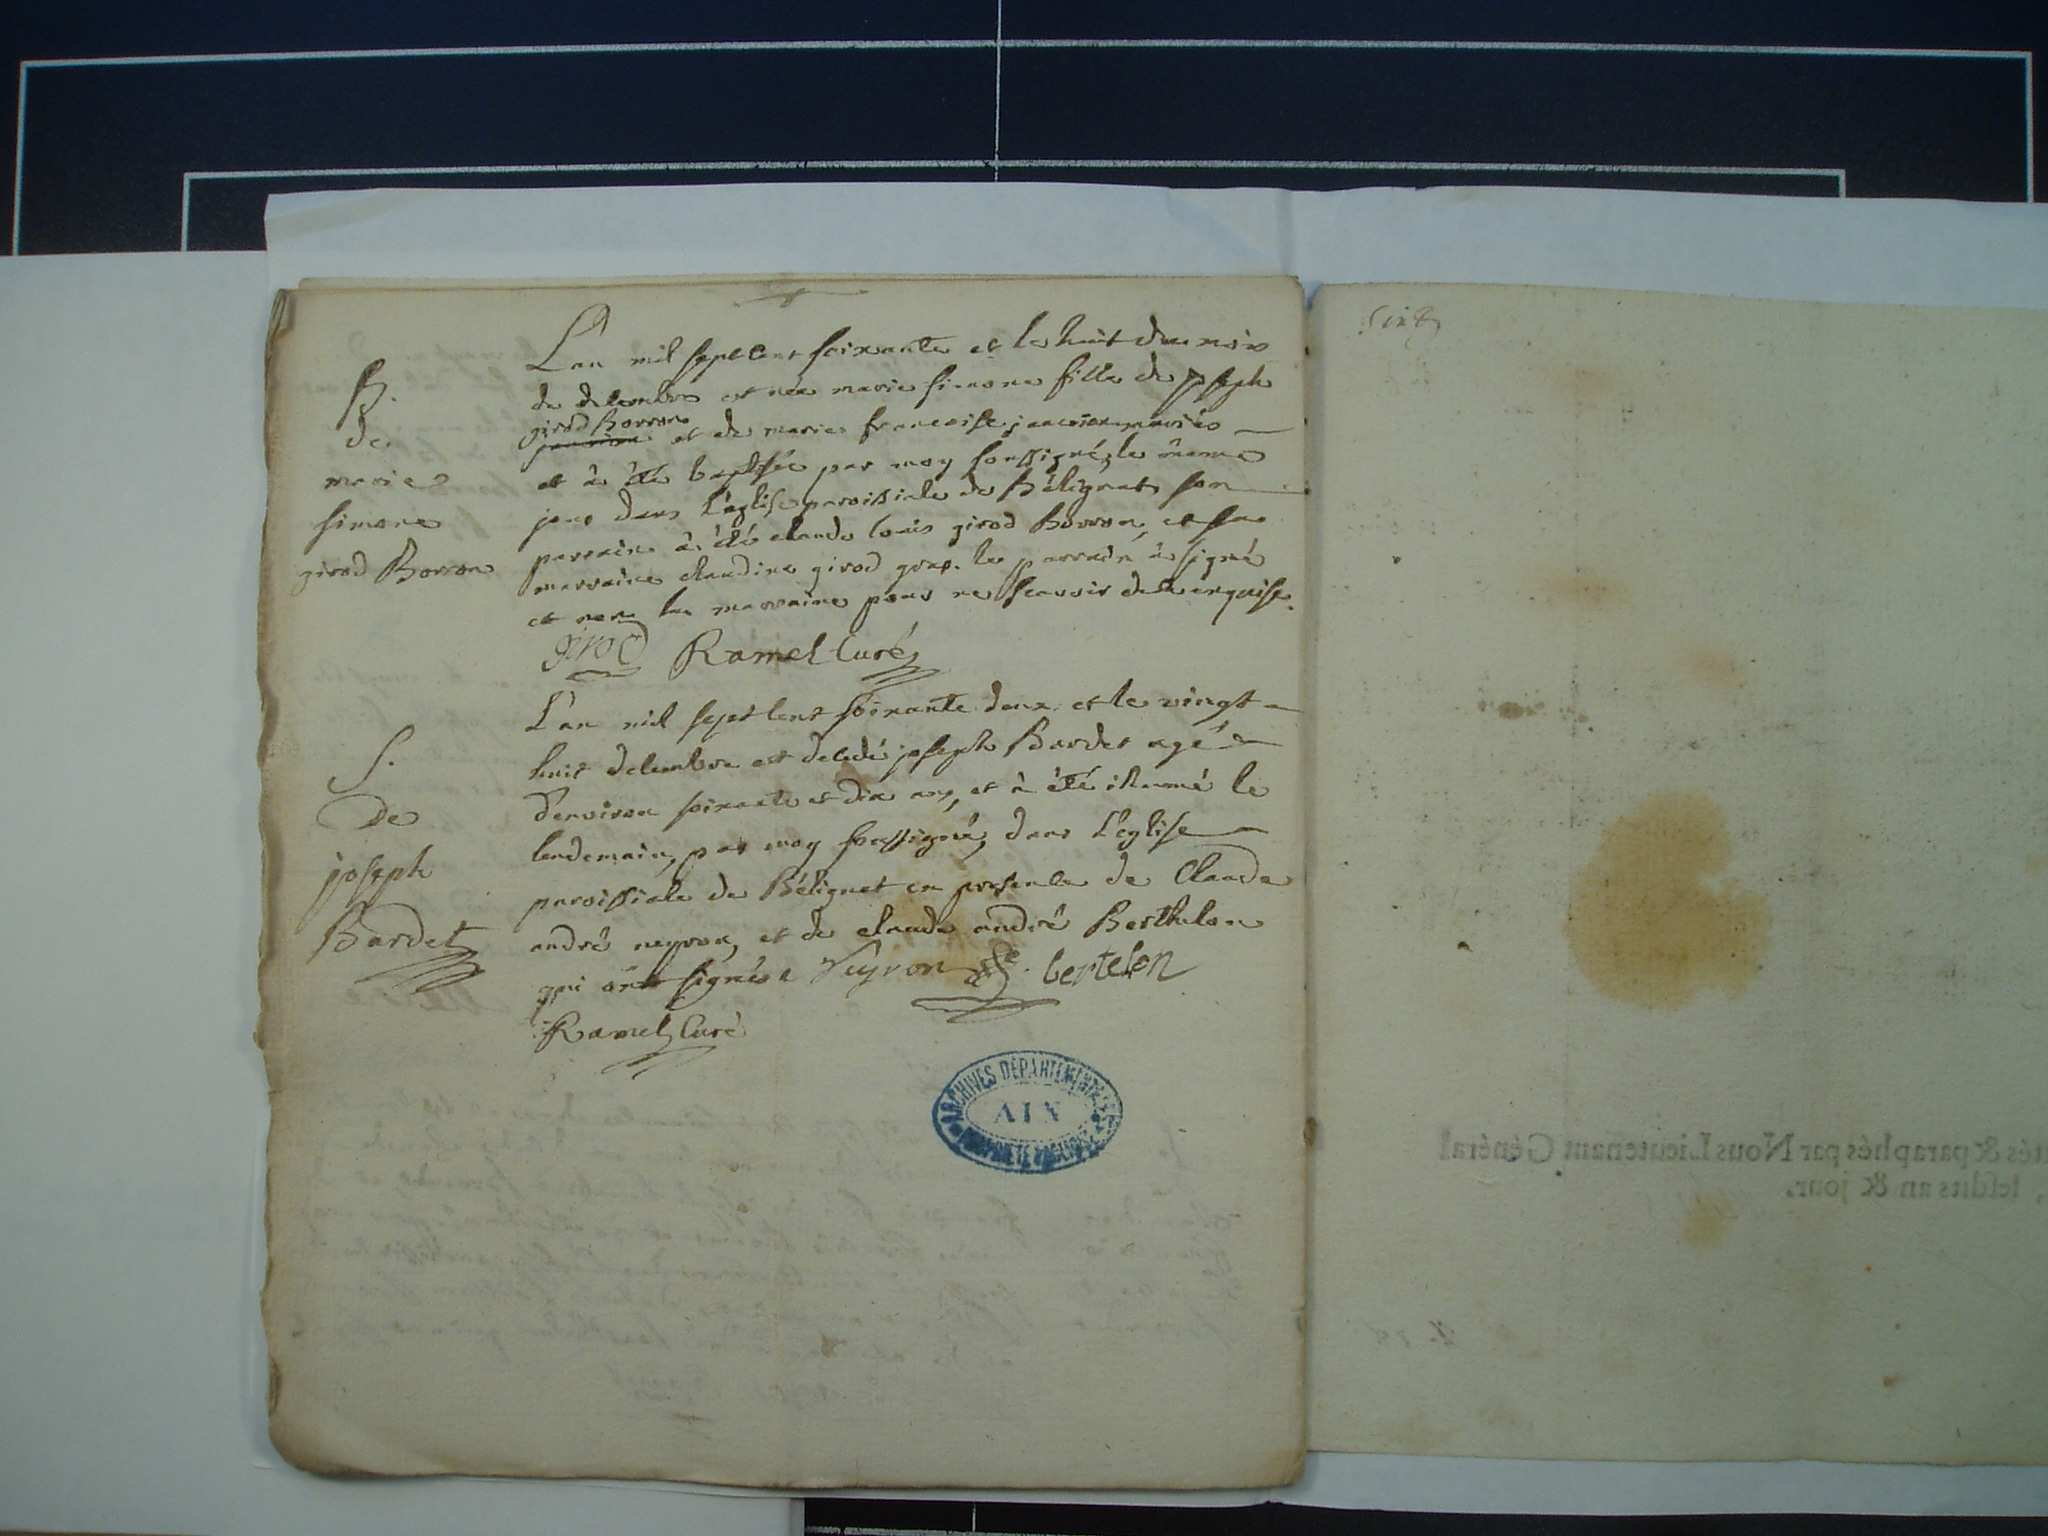 B.
de
marie
simone
girod Borron
L'an mil sept cent soixante et le huit du mois
de decembre est née marie simone fille de joseph
girod Borron
et de marie francoise janvier mariés
et à été baptisée par moy soussigné, le même
jour dans l'église paroissiale de Bélignat, son
parrain à été claude louis girod Borron, et sa
marraine claudine girod gros. le parrain à signé
et non la marraine pour ne scavoir de ce enquise.
girod Ramel Curé
S.
De
joseph
Bardet
L'an mil sept cent soixante deux et le vingt
huit decembre est decedé joseph Bardet agé
d'environ soixante et dix ans, et à été inhumé le
lendemain, par moy soussigné, dans l'église
paroissiale de Bélignat en presence de Claude
andré neyron, et de claude andré Berthelon
qui ont signés. Neyron bertelon
Ramel, Curé
ARCHIVES DÉPARTEMENTALES
AIN
PROPRIÉTÉ PUBLIQUE
tés & paraphés par Nous Lieutenant Général
, lesdits an & jour.